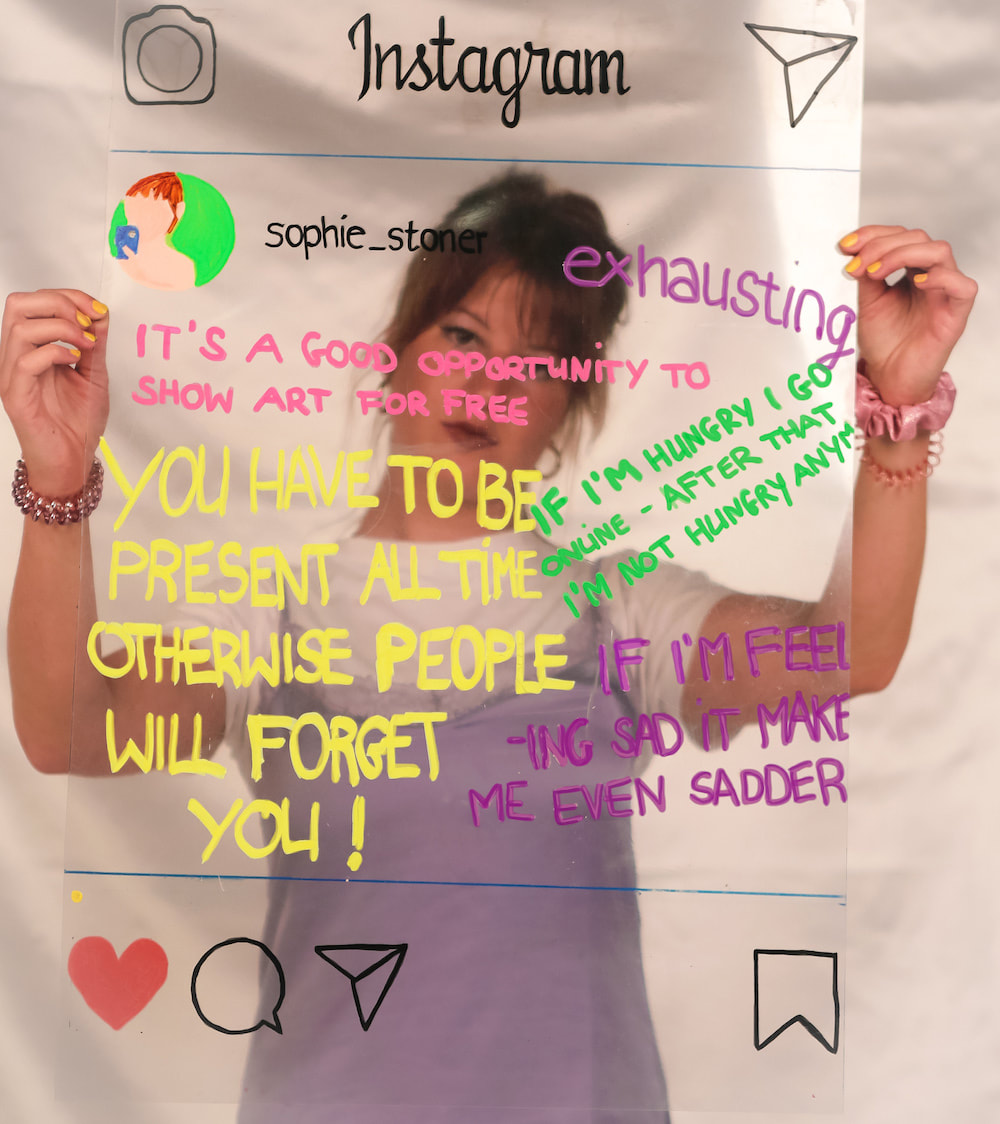 Instagram
sophie_stoner
exhausting
IT'S A GOOD OPPORTUNITY TO
SHOW ART FOR FREE
YOU HAVE TO BE
PRESENT ALL TIME
OTHERWISE PEOPLE
WILL FORGET
YOU!
IF I'M HUNGRY I GO
ONLINE - AFTER THAT
I'M NOT HUNGRY ANYM
IF I'M FEEL
-ING SAD iT MAKE
ME EVEN SADDER